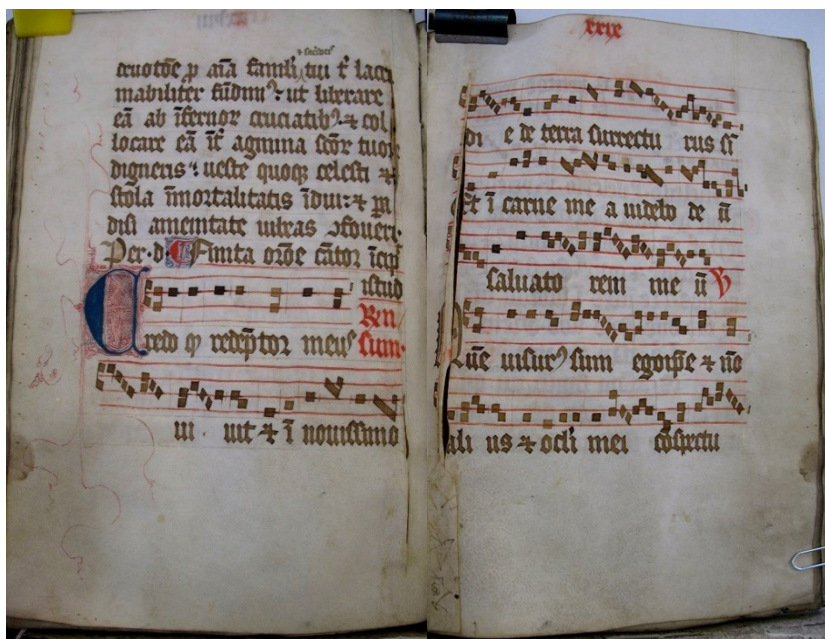 deuotōe p aīa famłi tui t̄ lacri
mabiliter fūdimꝰ ut liberare
eā ab īfernoꝝ cruciatibꝰ ⁊ col
locare eā īt̄ agmina scōꝝ tuoꝝ
digneris ueste quoqꝫ celesti ⁊
stola īmortalitatis īdui: ⁊
disi amenitate
Per·d· Finita orōe cātoꝝ īcip̄
istud
Ren
redo ꝙ redēptoꝝ meuꝰ sum·
ui uit ⁊ ī nouissimo
xxix
di e de terra surrectu rus sū
Et ī carne me a uidebo de ū
saluato rem me ū V
Quē uisurꝰ sum ego ip̄e ⁊ nō
ali us ⁊ oclī mei cōspectu